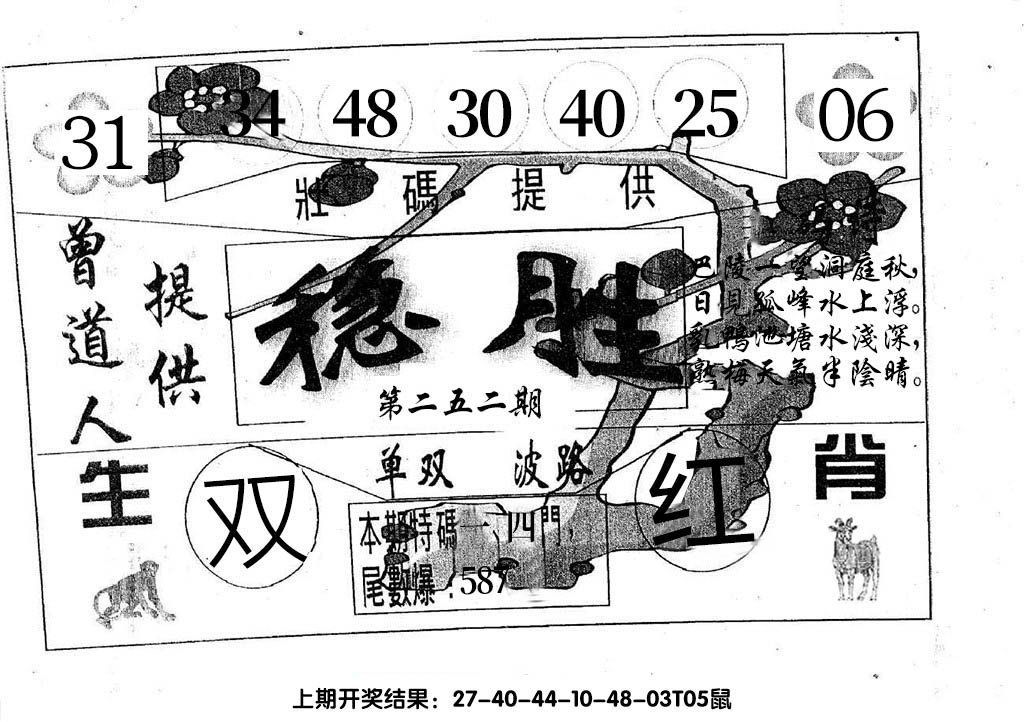 31 34 48 30 40 25 06
壯碼提供
特
曾道人
提供
稳胜
第二五二期
巴陵一望洞庭秋,
日見孤峰水上浮。
乳鴨池塘水淺深,
熟梅天氣半陰晴。
单双 波路
生肖
双
红
本期特碼一、四門,
尾數爆:587
上期开奖结果：27-40-44-10-48-03T05鼠